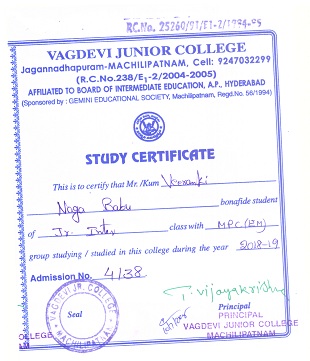 RC.No. 25260/91/E1-2/1994-95
VAGDEVI JUNIOR COLLEGE
Jagannadhapuram-MACHILIPATNAM, Cell: 9247032299
(R.C.No.238/E1-2/2004-2005)
AFFILIATED TO BOARD OF INTERMEDIATE EDUCATION, A.P., HYDERABAD
(Sponsored by : GEMINI EDUCATIONAL SOCIETY, Machilipatnam, Regd.No. 56/1994)
STUDY CERTIFICATE
This is to certify that Mr. /Kum Veeranki
Naga Babu bonafide student
of Jr. Inter class with MPC (EM)
group studying / studied in this college during the year 2018-19
Admission No. 4138
VAGDEVI JR. COLLEGE
Seal
MACHILIPATNAM
T. Vijayakrishna
Principal
PRINCIPAL
VAGDEVI JUNIOR COLLEGE
MACHILIPATNAM
OLLEGE
M